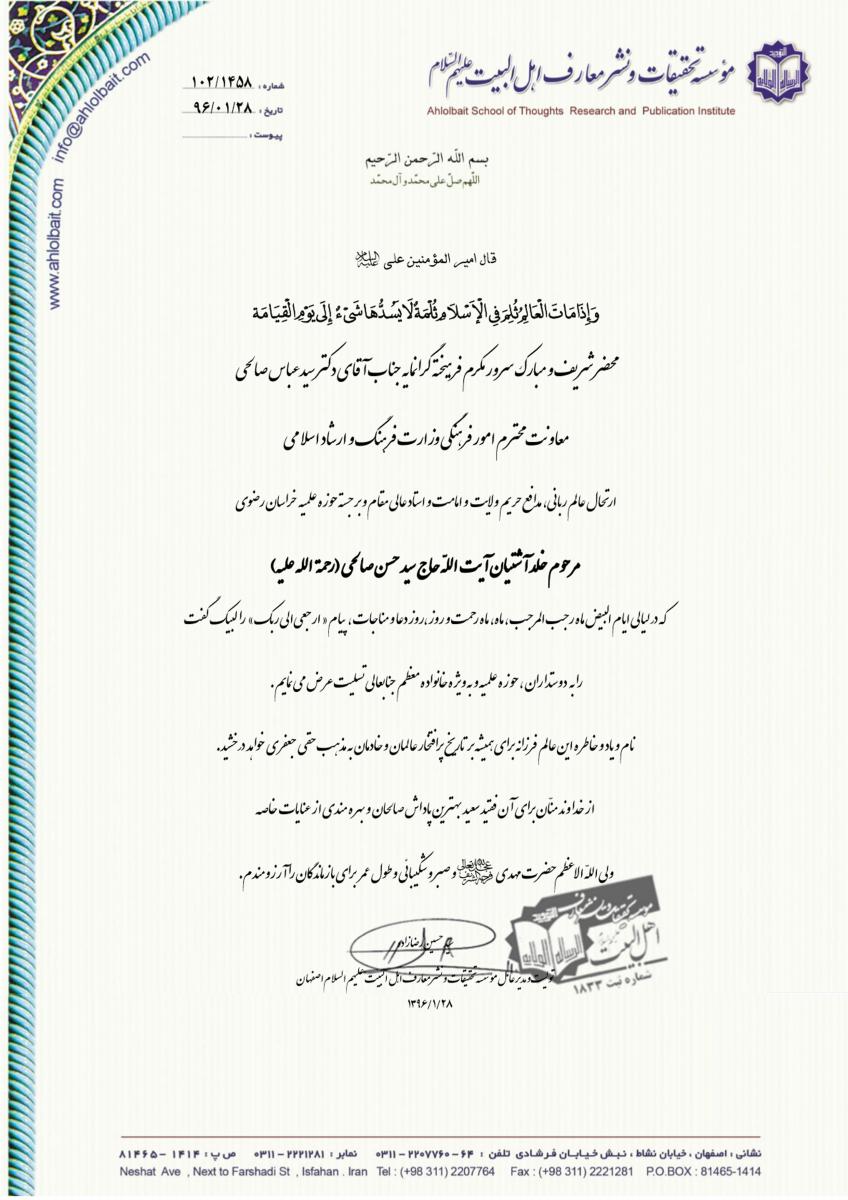 مؤسسه تحقیقات و نشر معارف اهل البیت علیهم السلام
Ahlolbait School of Thoughts Research and Publication Institute
شماره : ۱۰۲/۱۴۵۸
تاریخ : ۹۶/۰۱/۲۸
پیوست :
info@ahlolbait.com
www.ahlolbait.com
بسم اللّه الرّحمن الرّحیم
اللّهم صلّ علی محمّد و آل محمّد
قال امیر المؤمنین علی علیه‌السلام
وَإِذَا مَاتَ الْعَالِمُ ثُلِمَ فِی الْإِسْلَامِ ثُلْمَةٌ لَا یَسُدُّهَا شَیْءٌ إِلَی یَوْمِ الْقِیَامَةِ
محضر شریف و مبارک سرور مکرم فریختهٔ گرانمایه جناب آقای دکتر سید عباس صالحی
معاونت محترم امور فرهنگی وزارت فرهنگ و ارشاد اسلامی
ارتحال عالم ربانی، مدافع حریم ولایت و امامت و استاد عالی مقام و برجسته حوزه علمیه خراسان رضوی
مرحوم خلد آشتیان آیت اللّه حاج سید حسن صالحی (رحمة الله علیه)
که در لیالی ایام البیض ماه رجب المرجب، ماه، ماه رحمت و روز، روز دعا و مناجات، پیام « ارجعی الی ربک» را لبیک گفت
را به دوستداران، حوزه علمیه و به ویژه خانواده معظم جنابعالی تسلیت عرض می نمایم.
نام و یاد و خاطره این عالم فرزانه برای همیشه بر تاریخ پرافتخار عالمان و خادمان به مذهب حقه جعفری خواهد درخشید.
از خداوند منّان برای آن فقید سعید بهترین پاداش صالحان و بهره مندی از عنایات خاصه
ولی اللّه الاعظم حضرت مهدی عجل الله تعالی فرجه الشریف و صبر و شکیبائی و طول عمر برای بازماندگان را آرزومندم.
حسین رضازاده
تولیت و مدیر عامل مؤسسه تحقیقات و نشر معارف اهل البیت علیهم السلام اصفهان
۱۳۹۶/۱/۲۸
اهل البیت
شماره ثبت ۱۸۳۳
نشانی : اصفهان ، خیابان نشاط ، نبش خیابان فرشادی تلفن : ۶۴ - ۲۲۰۷۷۶۰ - ۰۳۱۱ نمابر : ۲۲۲۱۲۸۱ - ۰۳۱۱ ص پ : ۱۴۱۴ - ۸۱۴۶۵
Neshat Ave , Next to Farshadi St , Isfahan . Iran Tel : (+98 311) 2207764 Fax : (+98 311) 2221281 P.O.BOX : 81465-1414